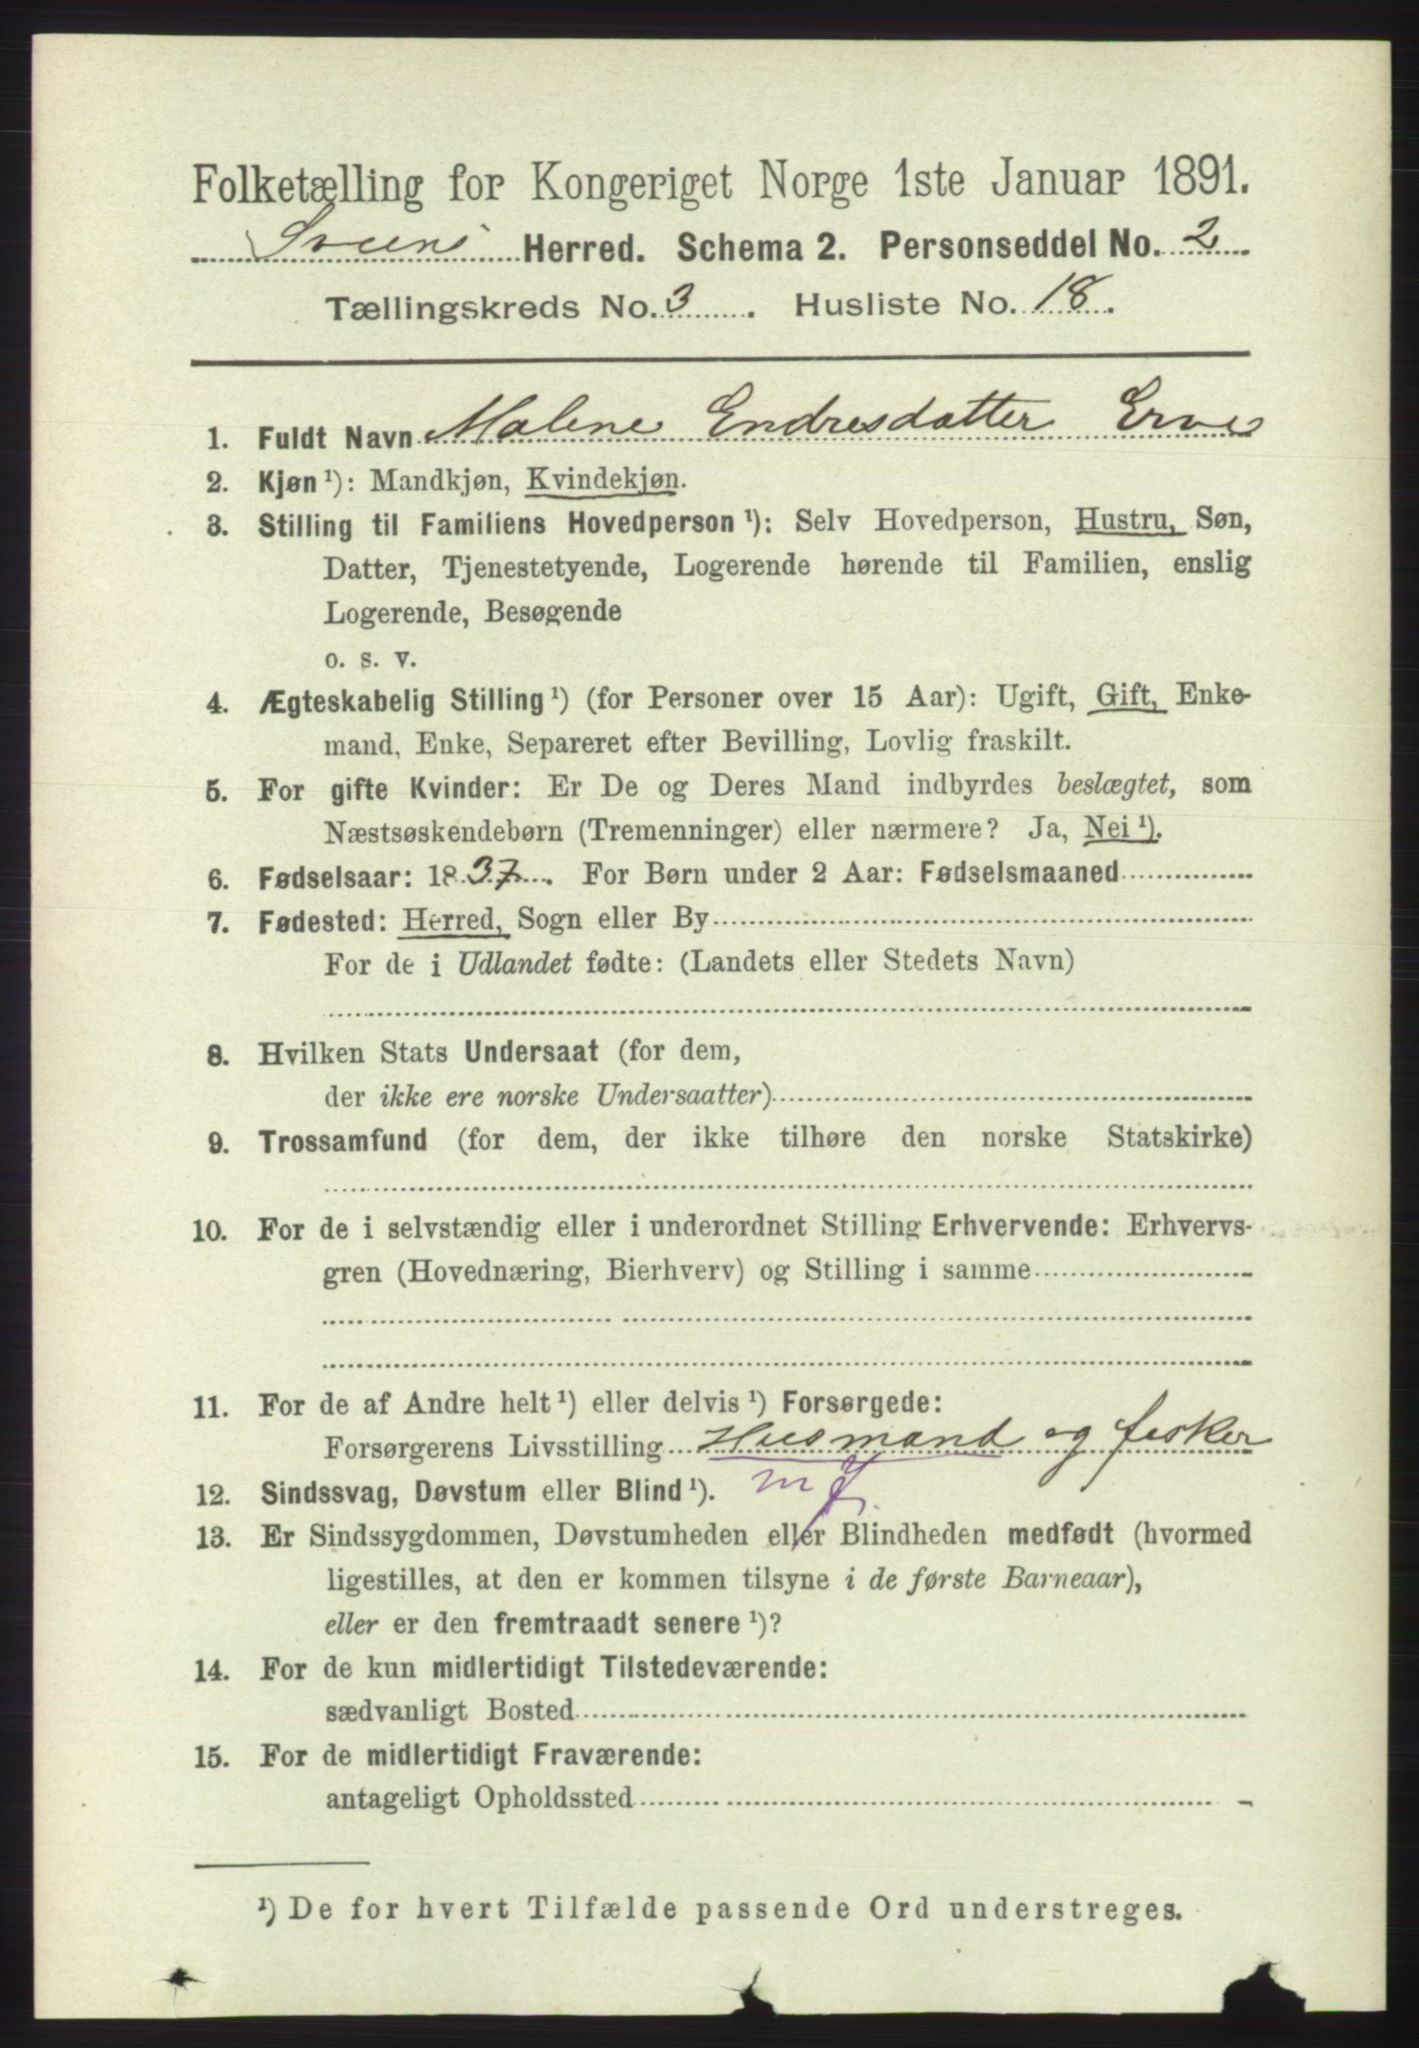 Folketælling for Kongeriget Norge 1ste Januar 1891.
Sveens Herred. Schema 2. Personseddel No. 2
Tællingskreds No. 3. Husliste No. 18.
1. Fuldt Navn Malene Endresdatter Erve
2. Kjøn ¹): Mandkjøn, Kvindekjøn.
3. Stilling til Familiens Hovedperson ¹): Selv Hovedperson, Hustru, Søn,
Datter, Tjenestetyende, Logerende hørende til Familien, enslig
Logerende, Besøgende
o. s. v.
4. Ægteskabelig Stilling ¹) (for Personer over 15 Aar): Ugift, Gift, Enke-
mand, Enke, Separeret efter Bevilling, Lovlig fraskilt.
5. For gifte Kvinder: Er De og Deres Mand indbyrdes beslægtet, som
Næstsøskendebørn (Tremenninger) eller nærmere? Ja, Nei ¹).
6. Fødselsaar: 1837. For Børn under 2 Aar: Fødselsmaaned
7. Fødested: Herred, Sogn eller By
For de i Udlandet fødte: (Landets eller Stedets Navn)
8. Hvilken Stats Undersaat (for dem,
der ikke ere norske Undersaatter)
9. Trossamfund (for dem, der ikke tilhøre den norske Statskirke)
10. For de i selvstændig eller i underordnet Stilling Erhvervende: Erhvervs-
gren (Hovednæring, Bierhverv) og Stilling i samme
11. For de af Andre helt ¹) eller delvis ¹) Forsørgede:
Forsørgerens Livsstilling Husmand og fisker
12. Sindssvag, Døvstum eller Blind ¹). m J.
13. Er Sindssygdommen, Døvstumheden eller Blindheden medfødt (hvormed
ligestilles, at den er kommen tilsyne i de første Barneaar),
eller er den fremtraadt senere ¹)?
14. For de kun midlertidigt Tilstedeværende:
sædvanligt Bosted
15. For de midlertidigt Fraværende:
antageligt Opholdssted
¹) De for hvert Tilfælde passende Ord understreges.